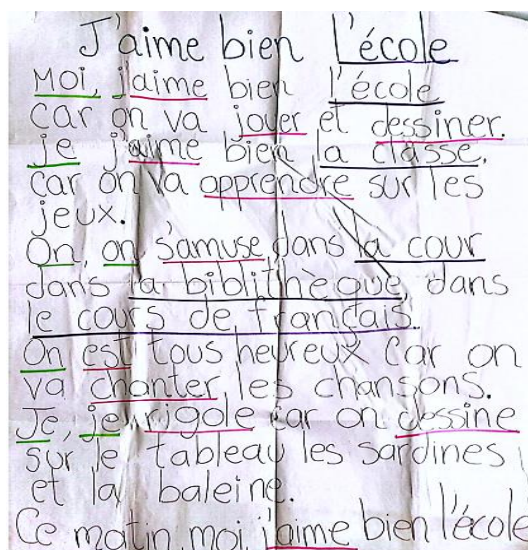 J'aime bien l'école
Moi, j'aime bien l'école
car on va jouer et dessiner.
je j'aime bien la classe.
car on va apprendre sur les
jeux.
On, on s'amuse dans la cour
dans la biblithèque dans
le cours de français.
On est tous heureux car on
va chanter les chansons.
Je, je rigole car on dessine
sur le tableau les sardines
et la baleine.
Ce matin moi j'aime bien l'école